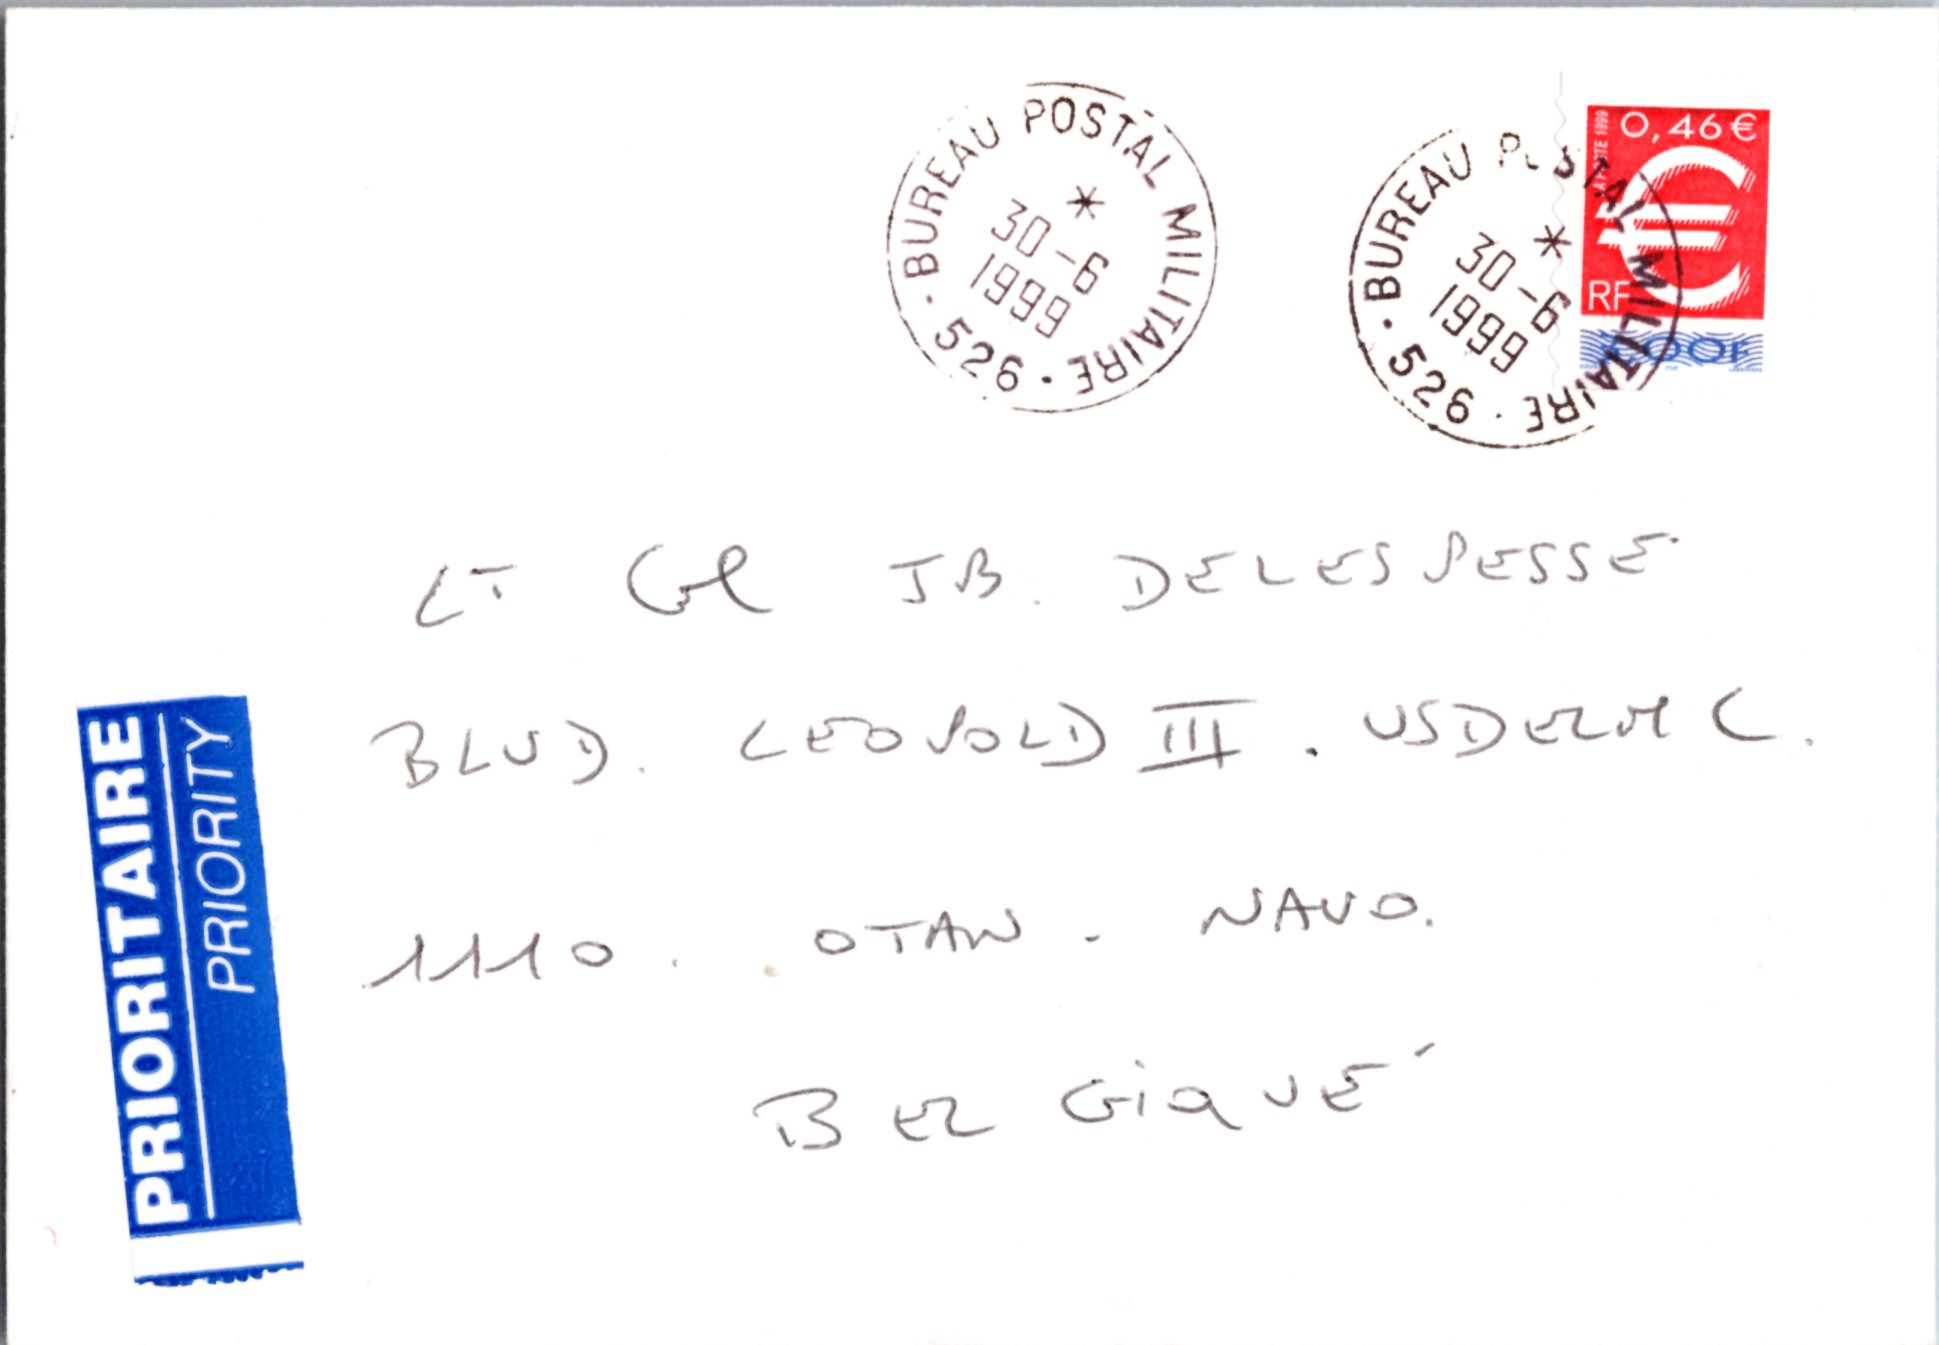 BUREAU POSTAL MILITAIRE · 526 ·
*
30-6
1999
BUREAU POSTAL MILITAIRE · 526 ·
*
30-6
1999
0,46 €
LA POSTE 1999
€
RF
3,00F
LT Cel JB. DELESPESSE
BLVD. LEOPOLD III. USDELMC.
1110. OTAN. NAVO.
BELGIQUE
PRIORITAIRE
PRIORITY